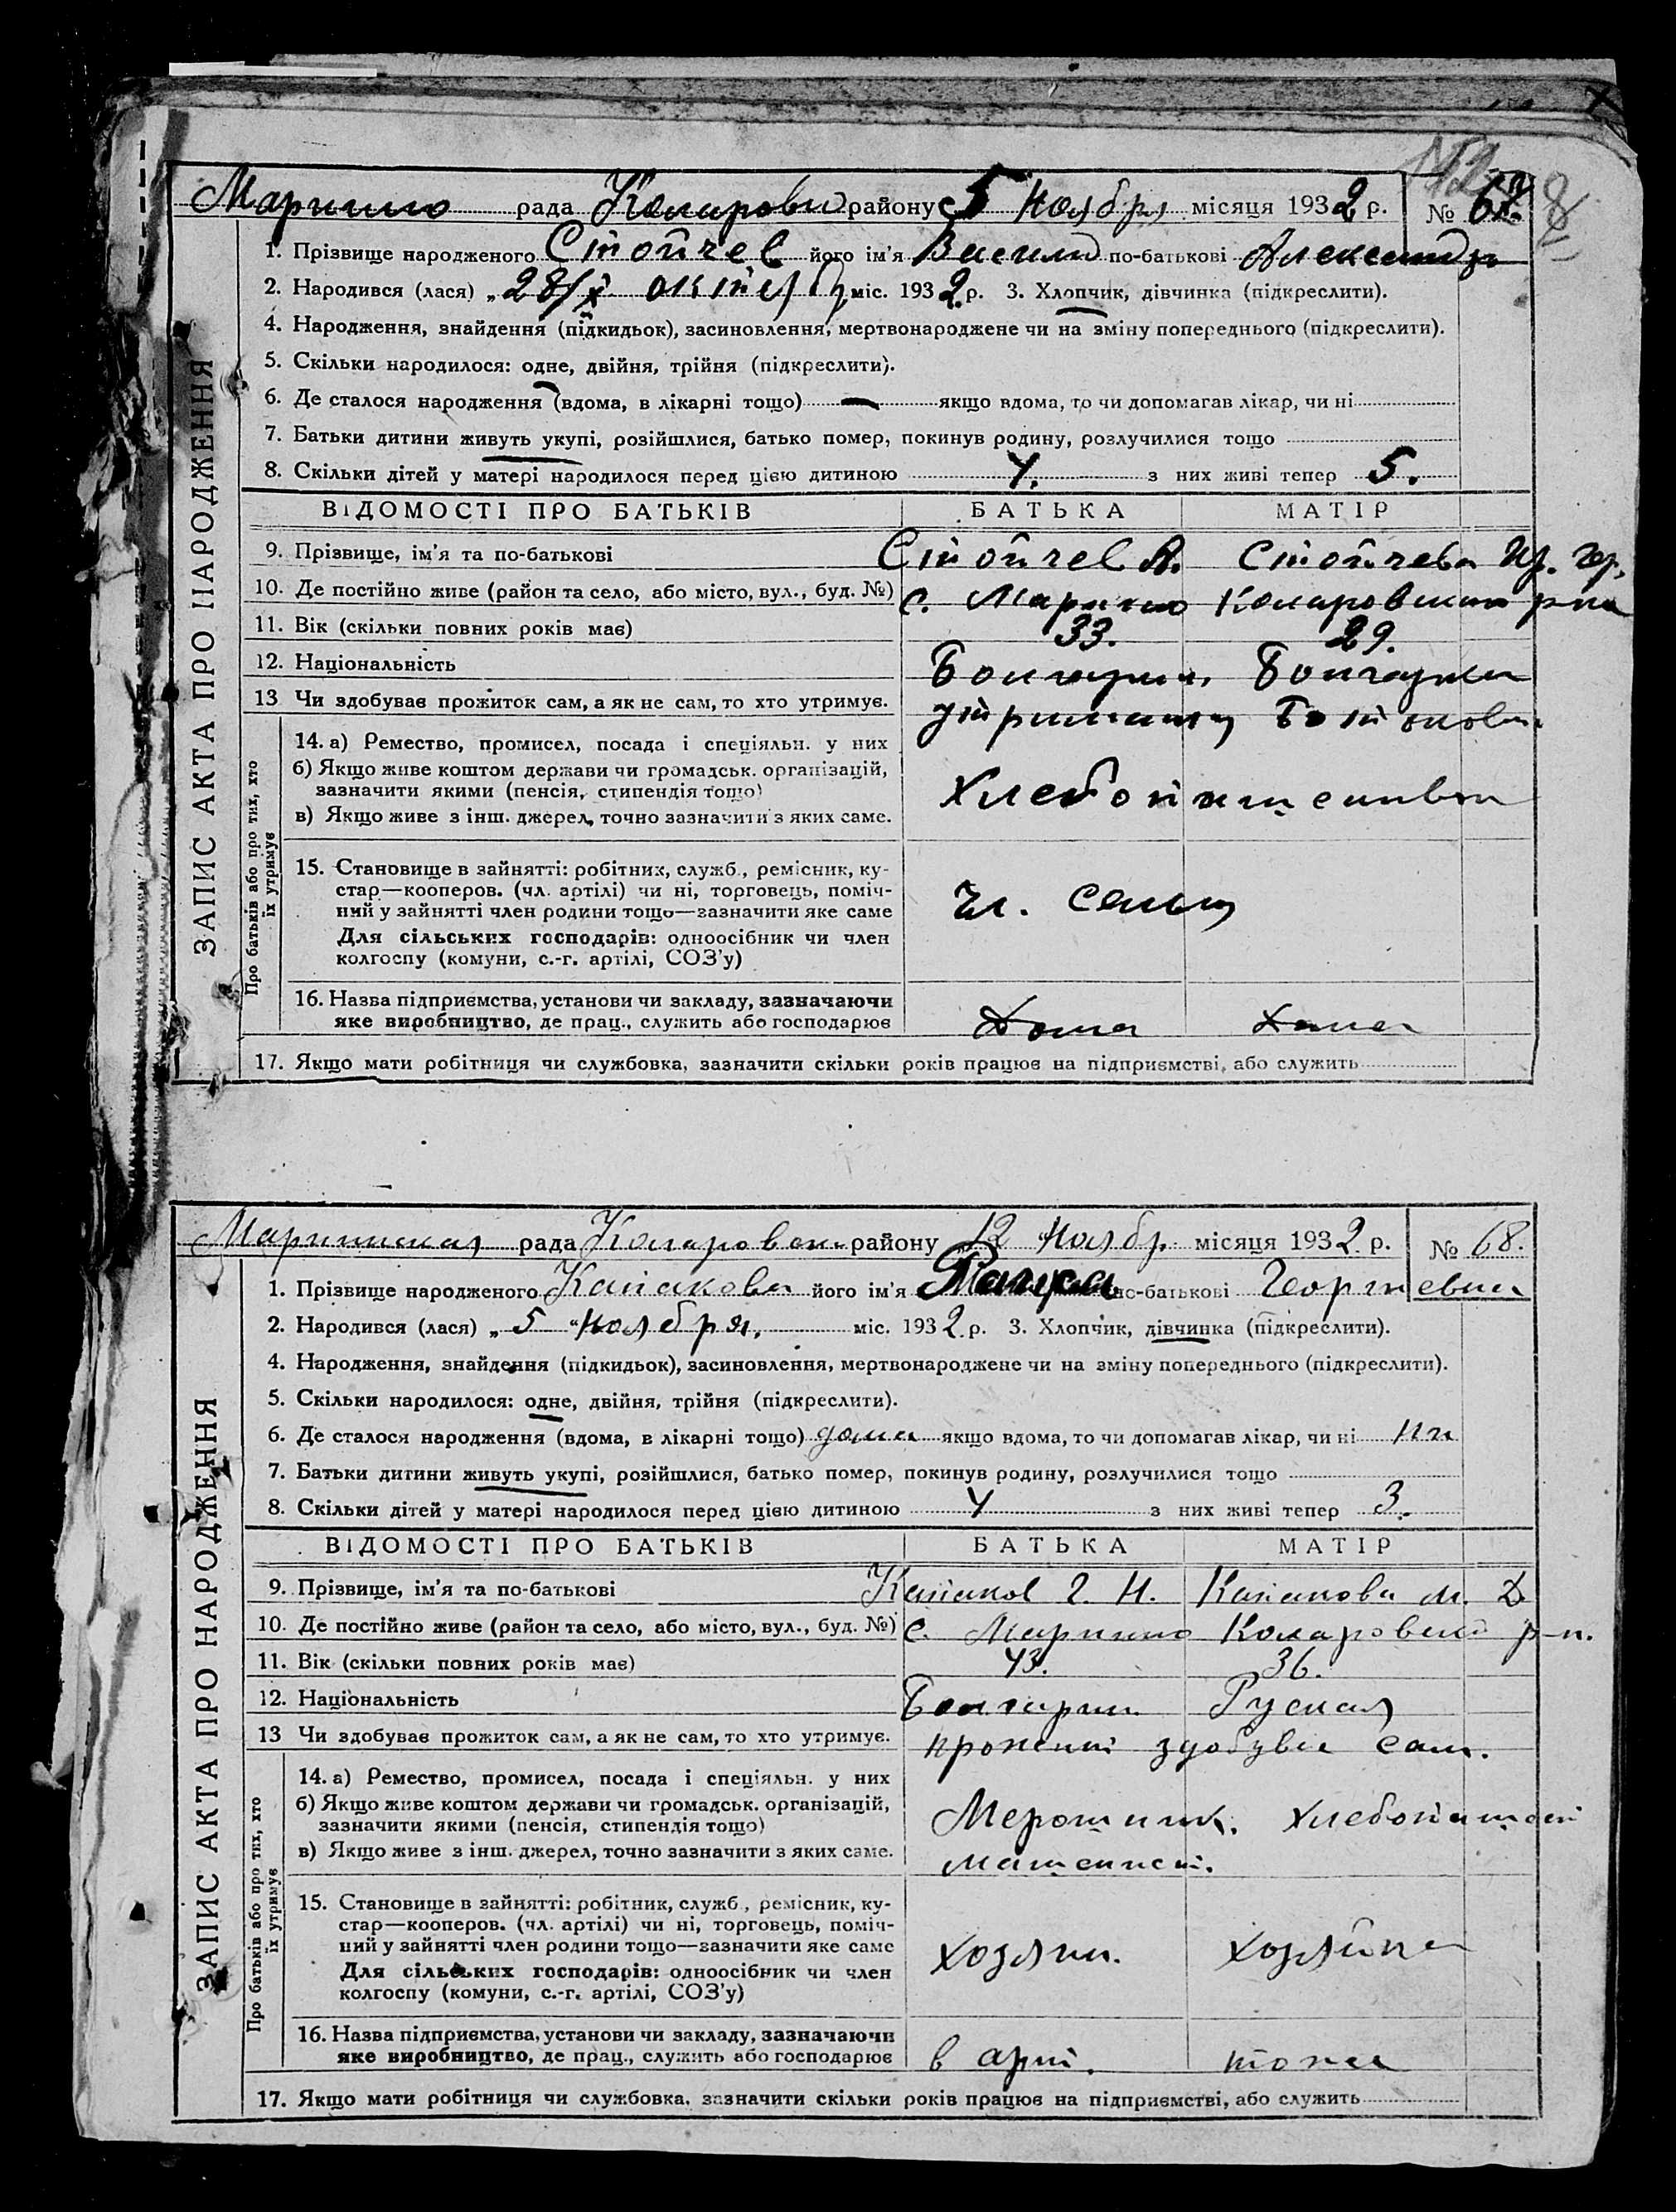 Марино рада Коларовск району 5 Ноября місяця 1932 р. № 67
ЗАПИС АКТА ПРО НАРОДЖЕННЯ
1. Прізвище народженого Стойчев його ім'я Василий по-батькові Александр
2. Народився (лася) „28/X октяб міс. 1932 р. 3. Хлопчик, дівчинка (підкреслити).
4. Народження, знайдення (підкидьок), засиновлення, мертвонароджене чи на зміну попереднього (підкреслити).
5. Скільки народилося: одне, двійня, трійня (підкреслити).
6. Де сталося народження (вдома, в лікарні тощо) — якщо вдома, то чи допомагав лікар, чи ні
7. Батьки дитини живуть укупі, розійшлися, батько помер, покинув родину, розлучилися тощо
8. Скільки дітей у матері народилося перед цією дитиною 4. з них живі тепер 5.
ВІДОМОСТІ ПРО БАТЬКІВ БАТЬКА МАТІР
9. Прізвище, ім'я та по-батькові Стойчев А. Стойчева
10. Де постійно живе (район та село, або місто, вул., буд. №) с. Марино Коларовский р-на
11. Вік (скільки повних років має) 33. 29.
12. Національність Болгарин. Болгарка
13 Чи здобуває прожиток сам, а як не сам, то хто утримує.
Про батьків або про тих, хто їх утримує
14. а) Ремество, промисел, посада і спеціяльн. у них
б) Якщо живе коштом держави чи громадськ. організацій,
зазначити якими (пенсія, стипендія тощо)
в) Якщо живе з інш. джерел, точно зазначити з яких саме.
15. Становище в зайнятті: робітник, служб., ремісник, ку-
стар—кооперов. (чл. артілі) чи ні, торговець, поміч-
ний у зайнятті член родини тощо—зазначити яке саме
Чл. семьи
Для сільських господарів: одноосібник чи член
колгоспу (комуни, с.-г. артілі, СОЗ'у)
16. Назва підприємства, установи чи закладу, зазначаючи
яке виробництво, де прац., служить або господарює Дома Дома
17. Якщо мати робітниця чи службовка, зазначити скільки років працює на підприємстві, або служить
Мариинская рада Коларовск. району 12 Ноябр. місяця 1932 р. № 68.
ЗАПИС АКТА ПРО НАРОДЖЕННЯ
1. Прізвище народженого Капакова його ім'я по-батькові Георгиевна
2. Народився (лася) „5 “ Ноября. міс. 1932 р. 3. Хлопчик, дівчинка (підкреслити).
4. Народження, знайдення (підкидьок), засиновлення, мертвонароджене чи на зміну попереднього (підкреслити).
5. Скільки народилося: одне, двійня, трійня (підкреслити).
6. Де сталося народження (вдома, в лікарні тощо) дома якщо вдома, то чи допомагав лікар, чи ні ни
7. Батьки дитини живуть укупі, розійшлися, батько помер, покинув родину, розлучилися тощо
8. Скільки дітей у матері народилося перед цією дитиною 4 з них живі тепер 3.
ВІДОМОСТІ ПРО БАТЬКІВ БАТЬКА МАТІР
9. Прізвище, ім'я та по-батькові Капаков Г. Н. Капакова М. Д
10. Де постійно живе (район та село, або місто, вул., буд. №) с. Марино Коларовский р-н.
11. Вік (скільки повних років має) 43. 36.
12. Національність Болгарин Руская
13 Чи здобуває прожиток сам, а як не сам, то хто утримує. прожит здобувае сам.
Про батьків або про тих, хто їх утримує
14. а) Ремество, промисел, посада і спеціяльн. у них
б) Якщо живе коштом держави чи громадськ. організацій,
зазначити якими (пенсія, стипендія тощо)
в) Якщо живе з інш. джерел, точно зазначити з яких саме. машенист.
15. Становище в зайнятті: робітник, служб., ремісник, ку-
стар—кооперов. (чл. артілі) чи ні, торговець, поміч-
ний у зайнятті член родини тощо—зазначити яке саме
хозяин. хозяйка
Для сільських господарів: одноосібник чи член
колгоспу (комуни, с.-г. артілі, СОЗ'у)
16. Назва підприємства, установи чи закладу, зазначаючи
яке виробництво, де прац., служить або господарює в арт. тоже
17. Якщо мати робітниця чи службовка, зазначити скільки років працює на підприємстві, або служить